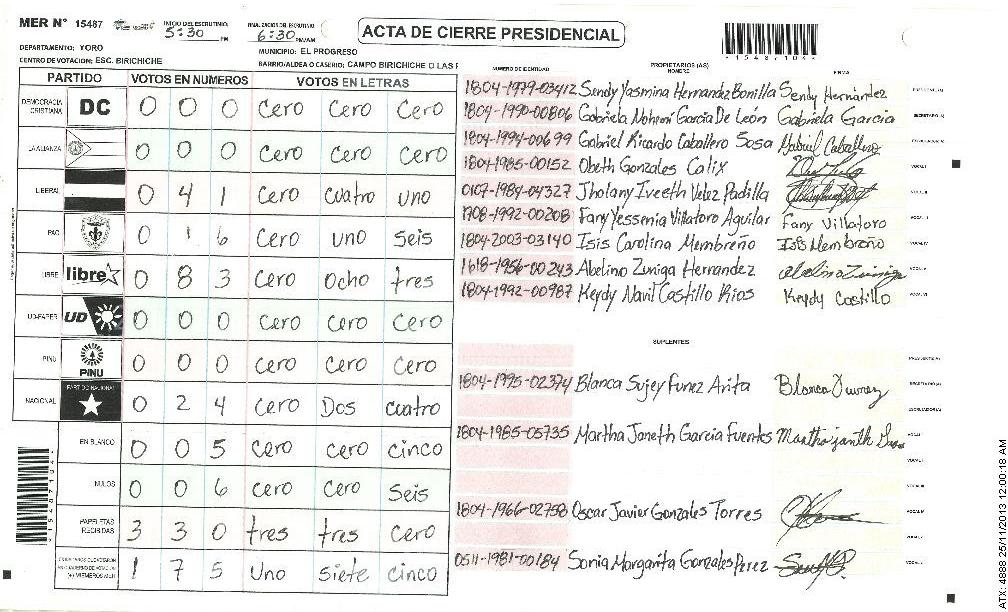 MER N° 15487
INICIO DEL ESCRUTINIO: 5:30 PM
FINALIZACION DEL ESCRUTINIO: 6:30 PM/AM
ACTA DE CIERRE PRESIDENCIAL
*15487104*
DEPARTAMENTO: YORO
MUNICIPIO: EL PROGRESO
CENTRO DE VOTACION: ESC. BIRICHICHE
BARRIO/ALDEA O CASERIO: CAMPO BIRICHICHE O LAS
PARTIDO VOTOS EN NUMEROS VOTOS EN LETRAS
DEMOCRACIA CRISTIANA DC 0 0 0 Cero Cero Cero
LA ALIANZA 0 0 0 Cero Cero Cero
LIBERAL 0 4 1 Cero Cuatro uno
PAC 0 1 6 Cero uno Seis
LIBRE libre 0 8 3 Cero Ocho tres
UD-FAPER UD 0 0 0 Cero Cero Cero
PINU PINU 0 0 0 Cero Cero Cero
NACIONAL PARTIDO NACIONAL 0 2 4 Cero Dos Cuatro
EN BLANCO 0 0 5 Cero Cero Cinco
NULOS 0 0 6 Cero Cero Seis
PAPELETAS RECIBIDAS 3 3 0 tres tres Cero
1 7 5 Uno Siete Cinco
*15487104*
NUMERO DE IDENTIDAD PROPIETARIOS (AS) NOMBRE FIRMA
1804-1979-03412 Sendy Yasmina Hernandez Bonilla Sendy Hernández PRESIDENTE(A)
1804-1990-00806 Gabriela Mohemi Garcia De León Gabriela Garcia SECRETARIO(A)
1804-1994-00699 Gabriel Ricardo Caballero Sosa Gabriel Caballero ESCRUTADOR(A)
1804-1985-00152 Obeth Gonzales Calix VOCAL I
0107-1984-04327 Jholany Iveeth Velez Padilla VOCAL II
1708-1992-00208 Fany Yessenia Villatoro Aguilar Fany Villatoro VOCAL III
1804-2003-03140 Isis Carolina Membreño Isis Membreño VOCAL IV
1618-1956-00243 Abelino Zuniga Hernandez Abelino Zuniga VOCAL V
1804-1992-00987 Keydy Navil Castillo Rios Keydy Castillo VOCAL VI
SUPLENTES
PRESIDENTE(A)
1804-1975-02374 Blanca Sujey Funez Avita Blanca Funez SECRETARIO(A)
ESCRUTADOR(A)
1804-1985-05735 Martha Janeth Garcia Fuentes VOCAL I
VOCAL II
VOCAL III
1804-1966-02758 Oscar Javier Gonzales Torres VOCAL IV
VOCAL V
0511-1981-00184 Sonia Margarita Gonzales Perez
ATX: 4888 25/11/2013 12:00:18 AM